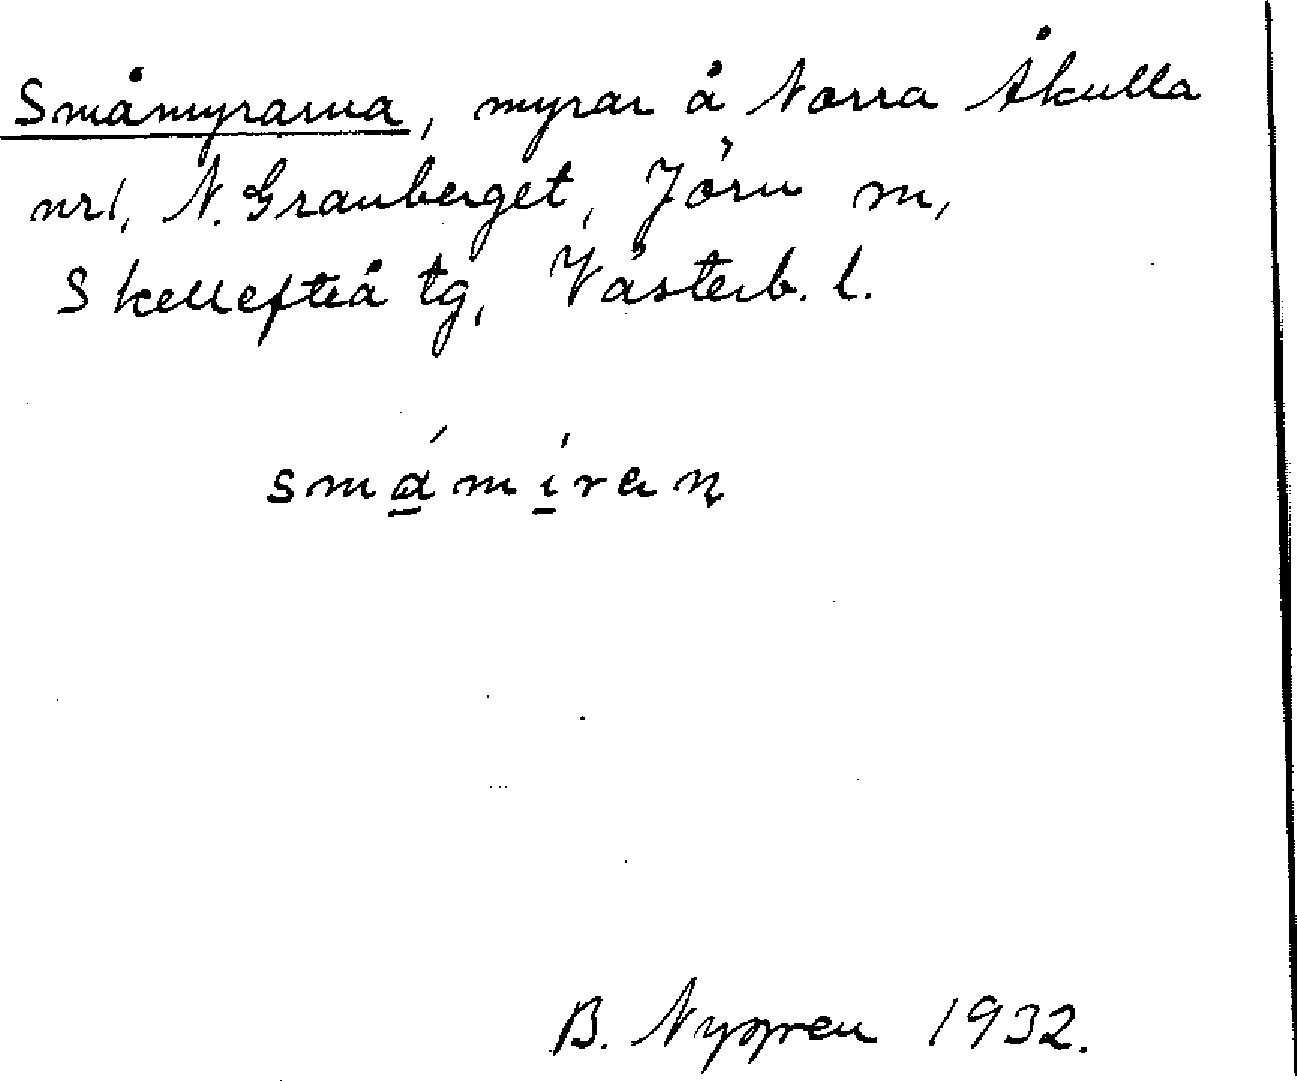 Småmyrarna, myrar å Norra Åkulla
nr1, N. Granberget, Jörn sn,
Skellefteå tg, Västerb. l.
smá̱mí̱raṇ
B. Nygren 1932.